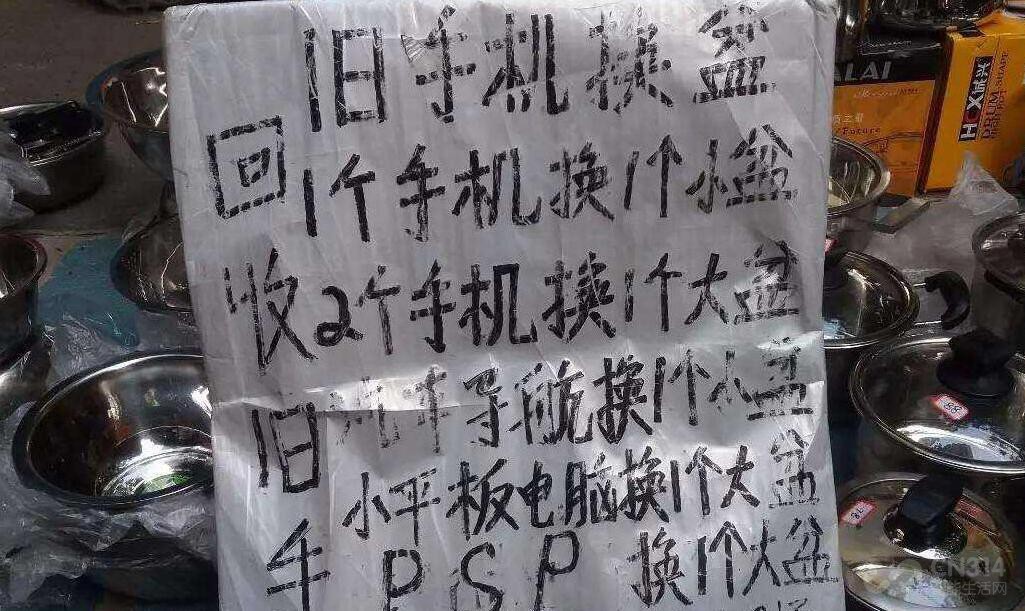 旧手机换盆
1个手机换1个小盆
2个手机换1个大盆
汽车导航换1个小盆
小平板电脑换1个大盆
PSP 换1个大盆
回收旧手
ALAI
Future
HOX诚兴
DRUM SHAPE
HIGH POT
88
78
CN314